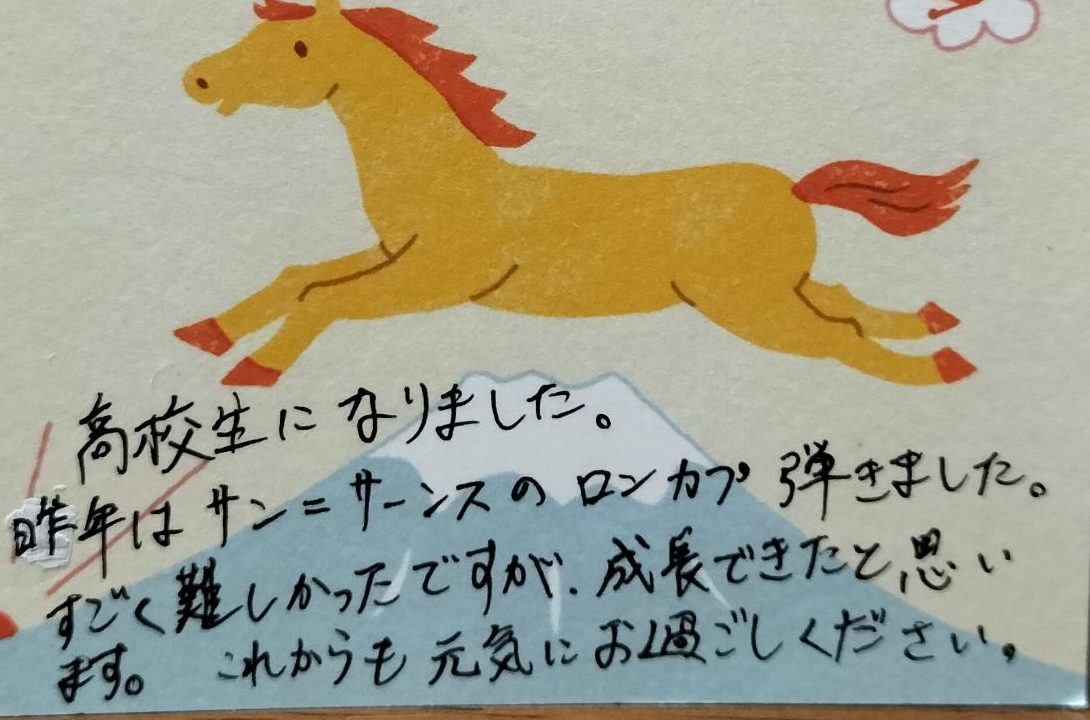 高校生になりました。
昨年はサン=サーンスのロンカプ弾きました。
すごく難しかったですが、成長できたと思い
ます。これからも元気にお過ごしください。